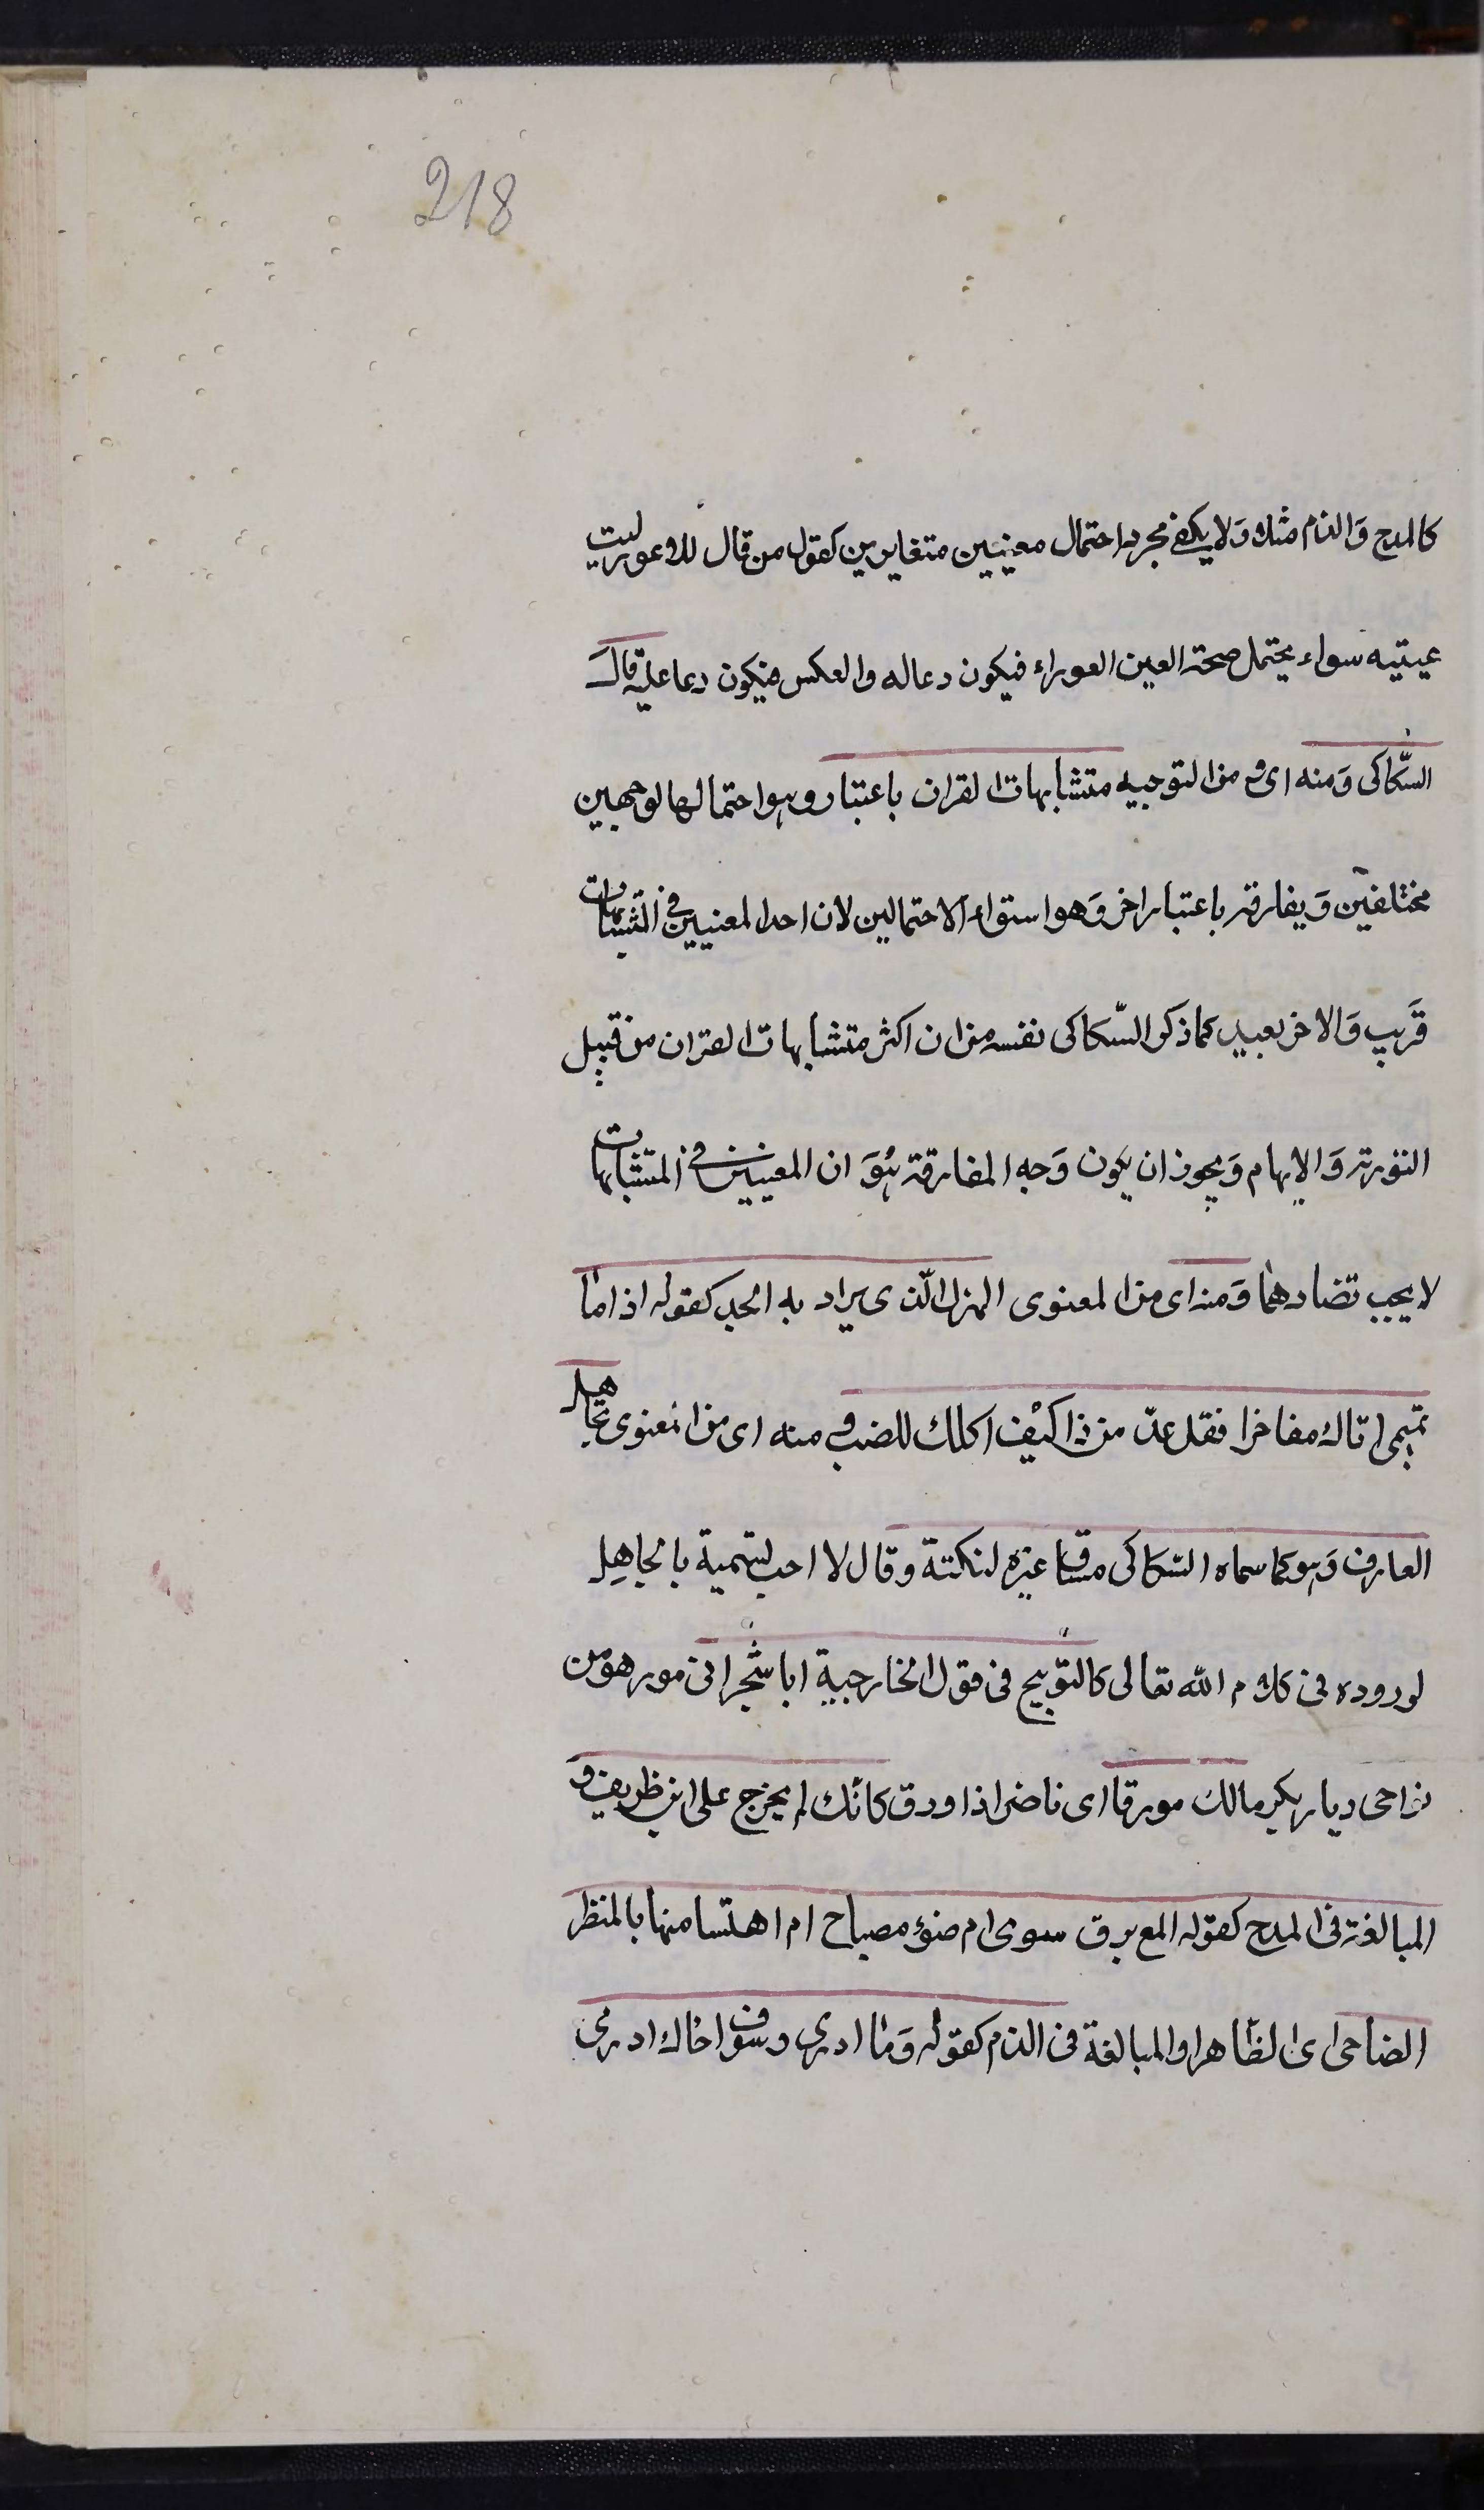 218
كالمدح وَالذم مثلا وَلا يكفى مجرد احتمال معنيين متغايرين كقول من قال للاعور ليت
عينيه سواء يحتمل صحة العين العوراء فيكون دعا له والعكس فيكون دعا عليه قال
السّكاكى وَمنه اى و من التوجيه متشابهات القران باعتبار وهو احتمالها لوجهين
مختلفين وَيفارقه باعتبار اخر وَهو استواء الاحتمالين لان احد المعنيين فى المتشابهات
قَريب وَالاخر بعيد كما ذكر السّكاكى نفسه من ان اكثر متشابهات القران من قبيل
التورية وَالايهام وَيجوز ان يكون وَجه المفارقة هُوَ ان المعنيين فى المتشابهات
لا يجب تضادهما وَمنه اى من المعنوى الهزل الّذى يراد به الجد كقوله اذا ما
تميمى اتاك مفاخرا فقل عدّ من ذا كيْف اكلك للضب و منه اى من المعنوى تجاهل
العارف وَهو كما سماه السّكاكى مساق غيره لنكتة وقال لا احب تسمية بالتجاهِل
لوروده فى كلام الله تعالى كالتّوبيخ فى قول الخارجية ايا شجر الخابور هو من
نواحى ديار بكر مالك مورقا اى ناضرا اذا ورق كانّك لم يجزع على ابن ظريف و
المبالغة فى المدح كقوله المع برق سوى ام ضوء مصباح ام ابتسامتها بالمنظر
الضاحى اى الظاهر او المبالغة فى الذم كقوله وَما ادرى وسَوف اخال ادرى